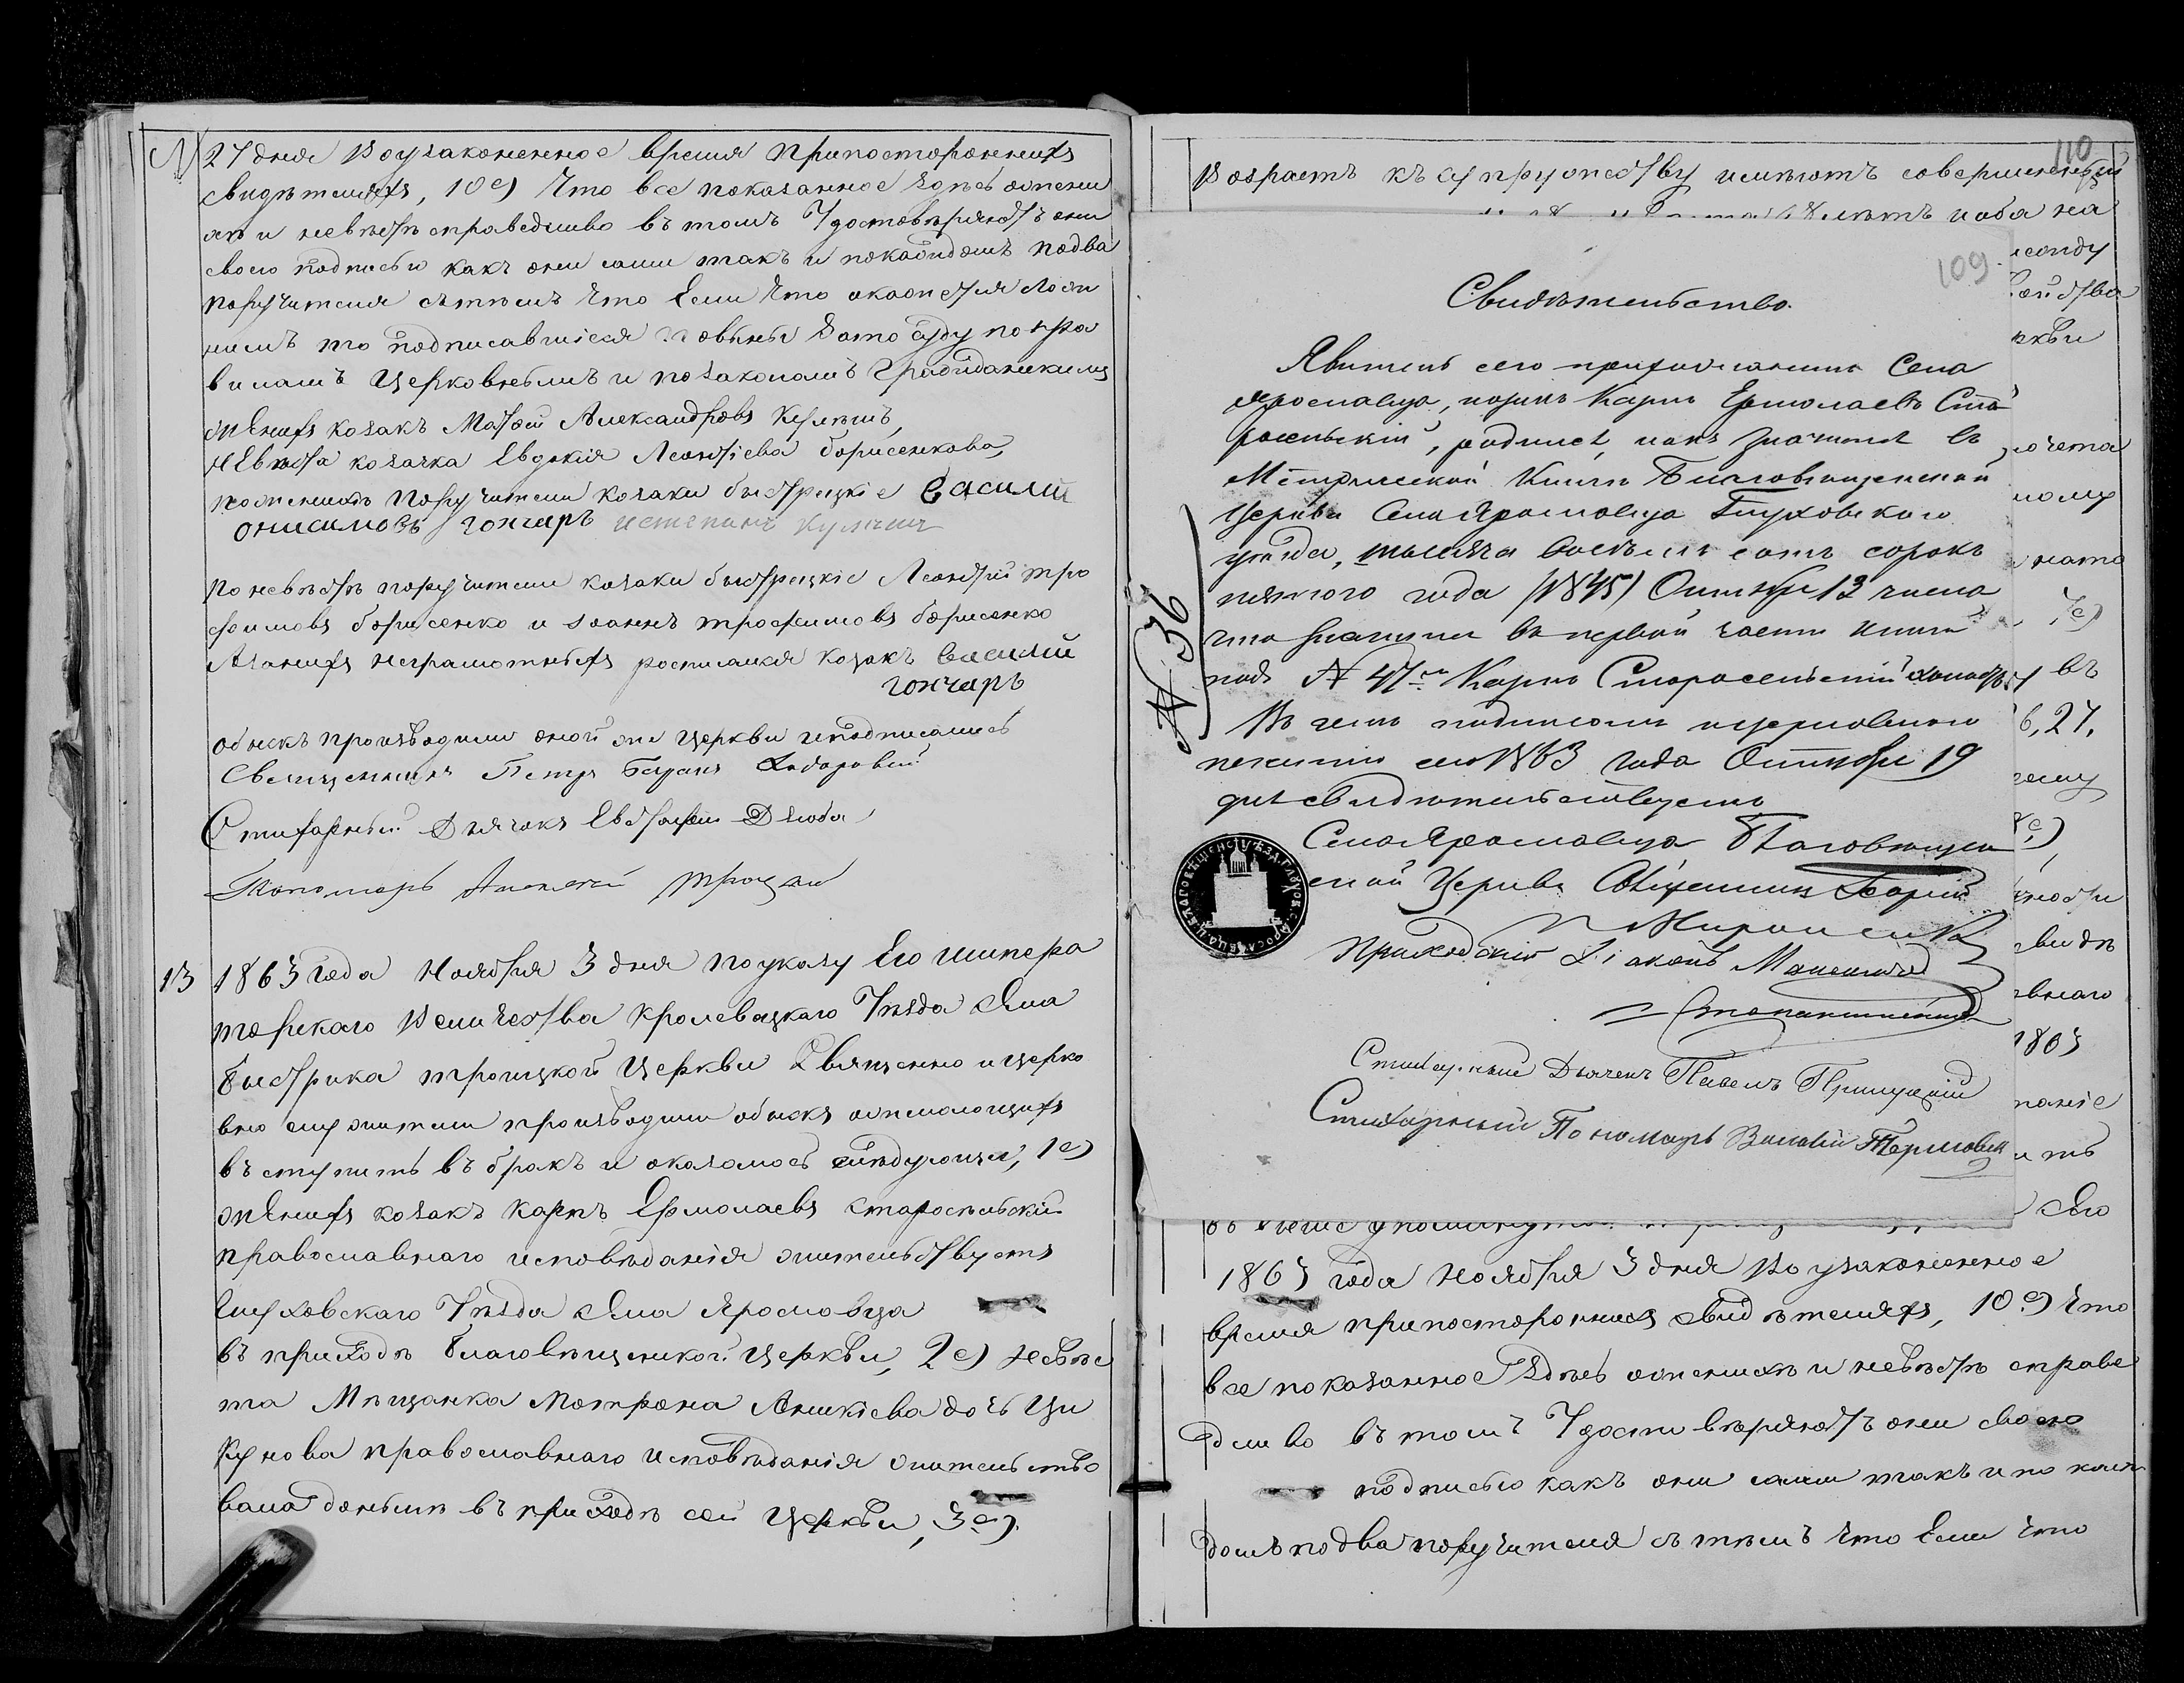 N 27 дня Воузаконенное время припостороннихъ
свидѣтеляхъ, 10е) Что все показанное здѣсь ожени
хѣ и невѣстѣ справедливо въ томъ Удостовѣряютъ они
своею подписью какъ они сами такъ и покаждомъ подва
поручителя сътѣмъ Что Если Что окажется лож
нымъ то подписавшіеся повинны зато суду попра
виламъ Церковнымъ и позаконамъ Гражданскимъ
жЕнихъ козакъ Матвей Александровъ
НЕвѣста козачка Евдокія Леонтіева борисенкова,
поженихѣ Поручители козаки быстрицкіе Василій
онисимовъ гончаръ истепанъ
По невѣстѣ поручители козаки быстрицкіе Леонтій тро
фимовъ борисенко и іоаннъ трофимовъ борисенко
Азанихъ неграмотныхъ росписался козакъ Василій
гончаръ
обыскъ производили оной же Церкви иподписались
Священникъ Петръ
Стихарный Дьячокъ Евстафій Дзюба
Пономарь Алексей троцкій
13 1863 года Ноября 3 дня по указу Его импера
торскаго Величества Кролевецкаго Уѣзда Села
Быстрика троицкой Церкви Священно и церко
вно служители производили обыскъ ожелающихъ
въступить въ бракъ и оказалось слѣдующее, 1е)
жЕнихъ козакъ Карпъ Ермолаевъ старосельскій
православнаго исповѣданія жительствуетъ
Глуховскаго Уѣзда Села Ярославца
въ приходѣ благовѣщенской Церкви, 2е) невѣс
та Мѣщанка Мотрона Аникіева дочь Ци
кунова православнаго исповѣданія жительство
вала донынѣ въ приходѣ сей Церкви, 3е)
110
Возрастъ къ супружеству имѣютъ совершенный
109
Свидѣтельство.
Явитель сего прихожанинъ Села
Ярославца, козакъ Карпъ Ермолаевъ Старо
сельскій, родился, какъ значится въ
Метрической Книгѣ Благовѣщенской
Церкви Села Ярославца Глуховскаго
уѣзда, тысяча восемь сотъ сорокъ
пятого года (1845) Октября 13 числа
что значится въ первой части книги
подъ N 47 Карпъ Старосельскій
Въ чемъ подписомъ ицерковною
печатью сего 1863 года Октября 19
дня свидѣтельствуемъ
Села Ярославца Благовѣщен
ской Церкви Священник Георгій
Приходскій Діаконъ
Стихарный Дьячекъ Павелъ Прилуцкій
Стихарный Пономарь Василий
N 36
БЛАГОВѢЩЕНС. УѢЗД. ГЛУХОВ. С. ЯРОСЛАВЕЦА Ц.
1863 года Ноября 3 дня Во узаконенное
время припостороннихъ свидѣтеляхъ, 10е) Что
все показанное Здѣсь оженихѣ и невѣстѣ справе
дливо въ томъ Удостовѣряютъ они своею
подписью какъ они сами такъ и по каж
домъ подва поручителя съ тѣмъ Что Если Что